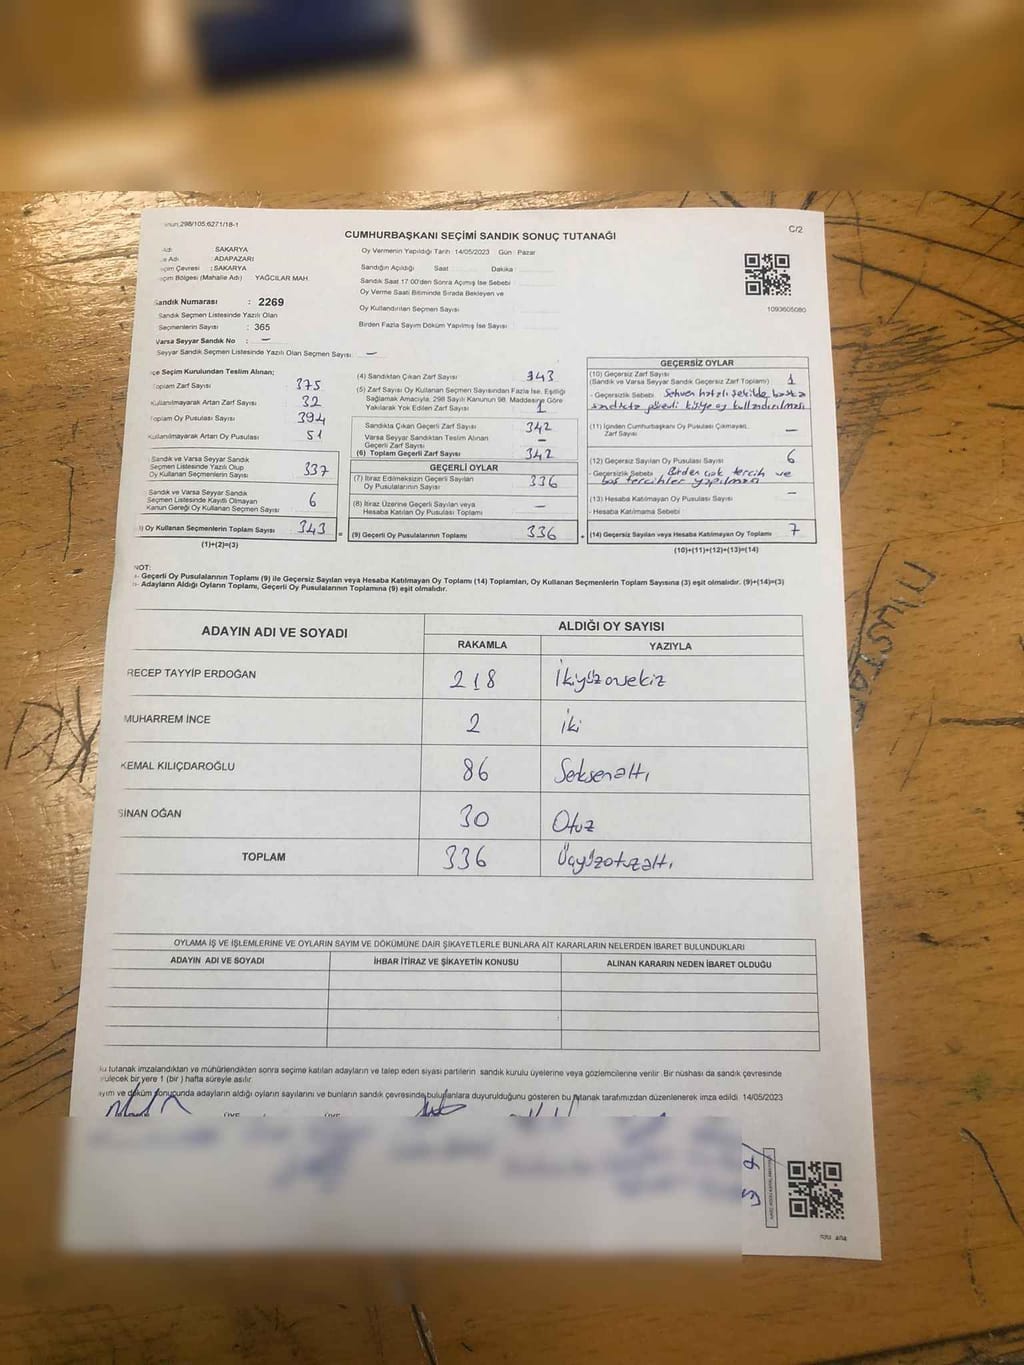 298/105;6271/18-1
C/2
CUMHURBAŞKANI SEÇİMİ SANDIK SONUÇ TUTANAĞI
: SAKARYA
Adı : ADAPAZARI
Çevresi : SAKARYA
Bölgesi (Mahalle Adı) YAĞCILAR MAH.
Sandık Numarası : 2269
Sandık Seçmen Listesinde Yazılı Olan
Seçmenlerin Sayısı : 365
Varsa Seyyar Sandık No : –
Seyyar Sandık Seçmen Listesinde Yazılı Olan Seçmen Sayısı –
Oy Vermenin Yapıldığı Tarih 14/05/2023 Gün : Pazar
Sandığın Açıldığı Saat Dakika
Sandık Saat 17:00'den Sonra Açımış İse Sebebi
Oy Verme Saati Bitiminde Sırada Bekleyen ve
Oy Kullandırılan Seçmen Sayısı
Birden Fazla Sayım Döküm Yapılmış İse Sayısı
1093605080
Seçim Kurulundan Teslim Alınan;
Toplam Zarf Sayısı 375
Kullanılmayarak Artan Zarf Sayısı 32
Toplam Oy Pusulası Sayısı 394
Kullanılmayarak Artan Oy Pusulası 51
Sandık ve Varsa Seyyar Sandık
Seçmen Listesinde Yazılı Olup
Oy Kullanan Seçmenlerin Sayısı 337
Sandık ve Varsa Seyyar Sandık
Seçmen Listesinde Kayıtlı Olmayan
Kanun Gereği Oy Kullanan Seçmen Sayısı 6
Oy Kullanan Seçmenlerin Toplam Sayısı 343 =
(1)+(2)=(3)
(4) Sandıktan Çıkan Zarf Sayısı 343
(5) Zarf Sayısı Oy Kullanan Seçmen Sayısından Fazla İse, Eşitliği
Sağlamak Amacıyla, 298 Sayılı Kanunun 98. Maddesine Göre
Yakılarak Yok Edilen Zarf Sayısı 1
Sandıkta Çıkan Geçerli Zarf Sayısı 342
Varsa Seyyar Sandıktan Teslim Alınan
Geçerli Zarf Sayısı –
(6) Toplam Geçerli Zarf Sayısı 342
GEÇERLİ OYLAR
(7) İtiraz Edilmeksizin Geçerli Sayılan
Oy Pusulalarının Sayısı 336
(8) İtiraz Üzerine Geçerli Sayılan veya
Hesaba Katılan Oy Pusulası Toplamı –
(9) Geçerli Oy Pusulalarının Toplamı 336 +
GEÇERSİZ OYLAR
(10) Geçersiz Zarf Sayısı
(Sandık ve Varsa Seyyar Sandık Geçersiz Zarf Toplamı) 1
- Geçersizlik Sebebi Sehven hatalı şekilde başka
sandıkta görevli kişiye oy kullandırılması
(11) İçinden Cumhurbaşkanı Oy Pusulası Çıkmayan
Zarf Sayısı –
(12) Geçersiz Sayılan Oy Pusulası Sayısı 6
- Geçersizlik Sebebi Birden çok tercih ve
boş tercihler yapılması
(13) Hesaba Katılmayan Oy Pusulası Sayısı –
- Hesaba Katılmama Sebebi
(14) Geçersiz Sayılan veya Hesaba Katılmayan Oy Toplamı 7
(10)+(11)+(12)+(13)=(14)
NOT:
- Geçerli Oy Pusulalarının Toplamı (9) ile Geçersiz Sayılan veya Hesaba Katılmayan Oy Toplamı (14) Toplamları, Oy Kullanan Seçmenlerin Toplam Sayısına (3) eşit olmalıdır. (9)+(14)=(3)
- Adayların Aldığı Oyların Toplamı, Geçerli Oy Pusulalarının Toplamına (9) eşit olmalıdır.
ADAYIN ADI VE SOYADI ALDIĞI OY SAYISI
RAKAMLA YAZIYLA
RECEP TAYYİP ERDOĞAN 218 İkiyüzonsekiz
MUHARREM İNCE 2 İki
KEMAL KILIÇDAROĞLU 86 Seksenaltı
SİNAN OĞAN 30 Otuz
TOPLAM 336 Üçyüzotuzaltı
OYLAMA İŞ VE İŞLEMLERİNE VE OYLARIN SAYIM VE DÖKÜMÜNE DAİR ŞİKAYETLERLE BUNLARA AİT KARARLARIN NELERDEN İBARET BULUNDUKLARI
ADAYIN ADI VE SOYADI İHBAR İTİRAZ VE ŞİKAYETİN KONUSU ALINAN KARARIN NEDEN İBARET OLDUĞU
tutanak imzalandıktan ve mühürlendikten sonra seçime katılan adayların ve talep eden siyasi partilerin sandık kurulu üyelerine veya gözlemcilerine verilir. Bir nüshası da sandık çevresinde
bir yere 1 (bir) hafta süreyle asılır.
ve döküm sonucunda adayların aldığı oyların sayılarını ve bunların sandık çevresinde bulunanlara duyurulduğunu gösteren bu tutanak tarafımızdan düzenlenerek imza edildi. 14/05/2023
ÜYE ÜYE